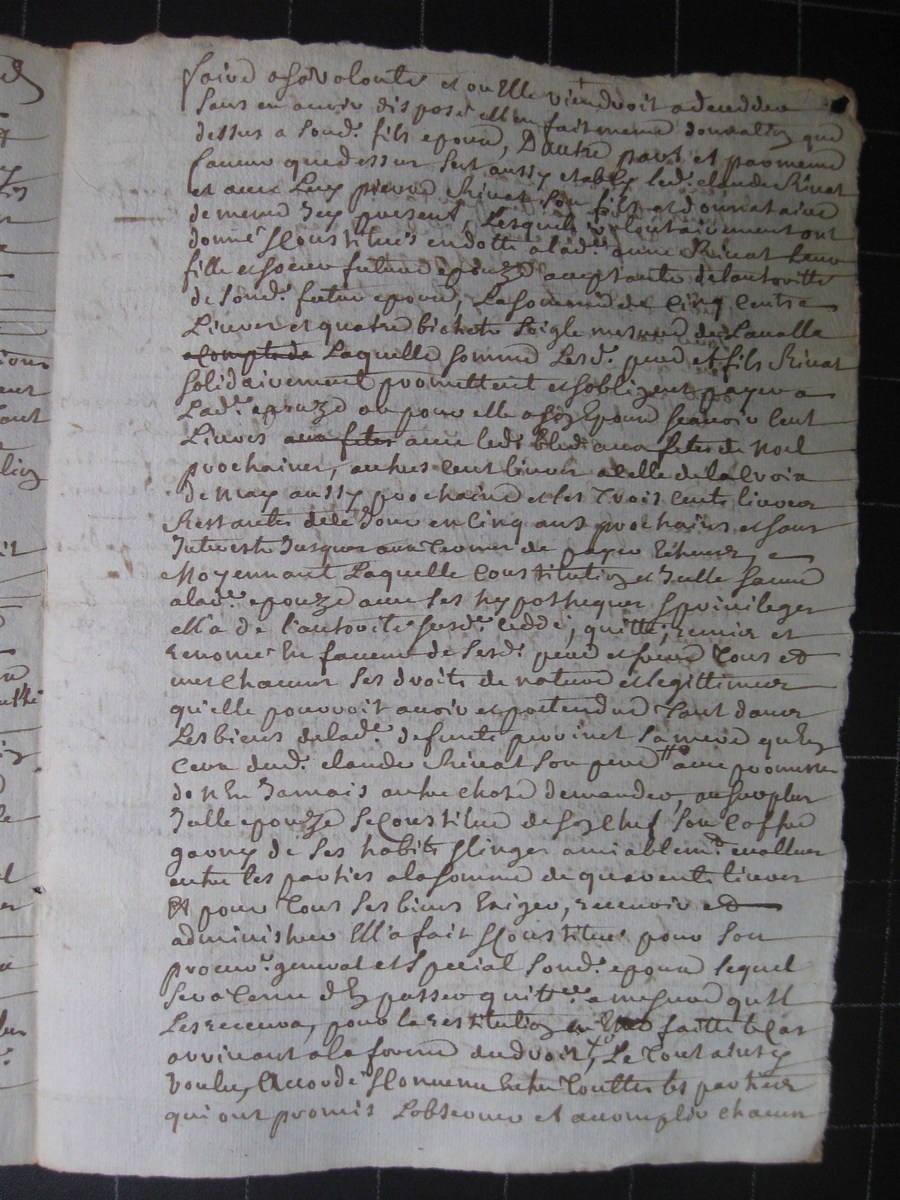 faire a sa volonté et ou Elle viendroit a deceddeo
Sans en avoir disposé elle en fait meme donnation que
dessus a Sond. fils epoux, D'autre part et par meme
Comme que dessus Sest aussy estably led. claude Rivat
et avec Luy pierre Rivat Son fils et donnataire
de meme Icy present, Lesquels volontairement ont
donné & Constitué en dotte a lad.e anne Rivat leur
fille et soeur future epouze acceptante de lautorité
de Sond. futur epoux, La Somme de Cinq Cents
Livres et quatre bichets Soigle mesure de Lavalla
a Compte de Laquelle Somme Lesd. pere et fils Rivat
Solidairement promettent et sobligent payer a
Lad.e epouze ou pour elle a son Epoux Scavoir Cent
Livres aux fetes avec led. bled aux fetes de noel
prochaines, autres Cent livres a celle de la Croix
de May aussy prochaine et les Trois Cents livres
Restantes de ce Jour en Cinq ans prochains et sans
Interests Jusques aux termes de payer Echeus,
Moyennant Laquelle Constitution et Icelle sauve
a lad.e epouze avec ses hypotheques & privileges
Ell'a de l'autorité susd.e cedde, quitte, remis et
renonce En faveur de Sesd. pere et frere Tous et
uns Chacuns Ses droits de nature et legittimes
qu'elle pouvroit avoir et pretendre Tant dans
Les biens de lad.e defunte perrinet Sa mere qu'En
Ceux dud. claude Rivat Son pere avec promesse
de n'En Jamais autre chose demander, au surplus
Icelle epouze se Constitue de son Chef Son Coffre
garny de Ses habits & linges amiablem.t evallués
entre les parties a la Somme de quarente livres
Et pour Tous Ses biens Exiger, recevoir et
administrer Ell'a fait & Constitué pour Son
procur.r general et Special Sond. epoux lequel
Sera Tenu d'En passer quitt.ce a mesure qu'Il
Les recevra, pour la restitution En Etre faitte le Cas
arrivant a la forme du droit, Le Tout ainsy
voulu, accordé & Convenu Entre Touttes les parties
qui ont promis Lobserver et accomplir chacun